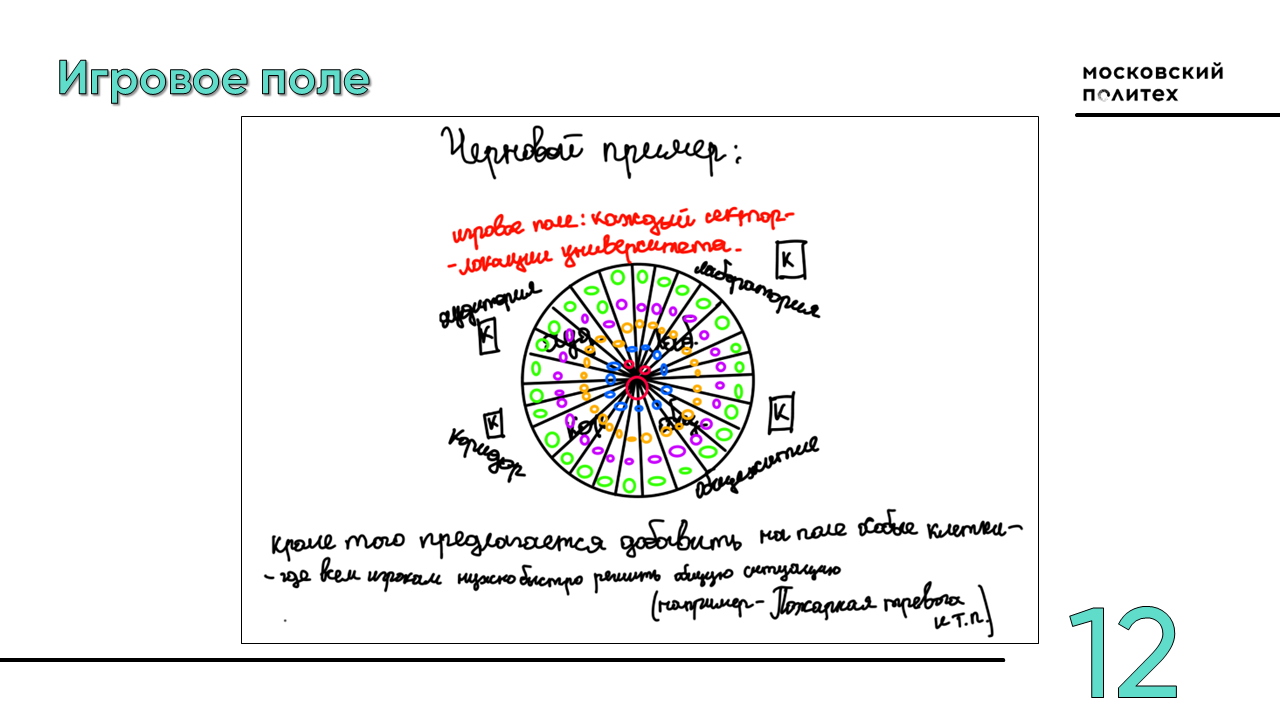 Игровое поле
московский
политех
Черновой пример:
игровое поле: каждый сектор-
-локации университета.
аудитория
лаборатория
К
К
ауд.
лаб.
кор.
общ.
К
К
коридор
общежитие
кроме того предлагается добавить на поле особые клетки-
- где всем игрокам нужно быстро решить общую ситуацию
(например- Пожарная тревога
и т.п.)
12